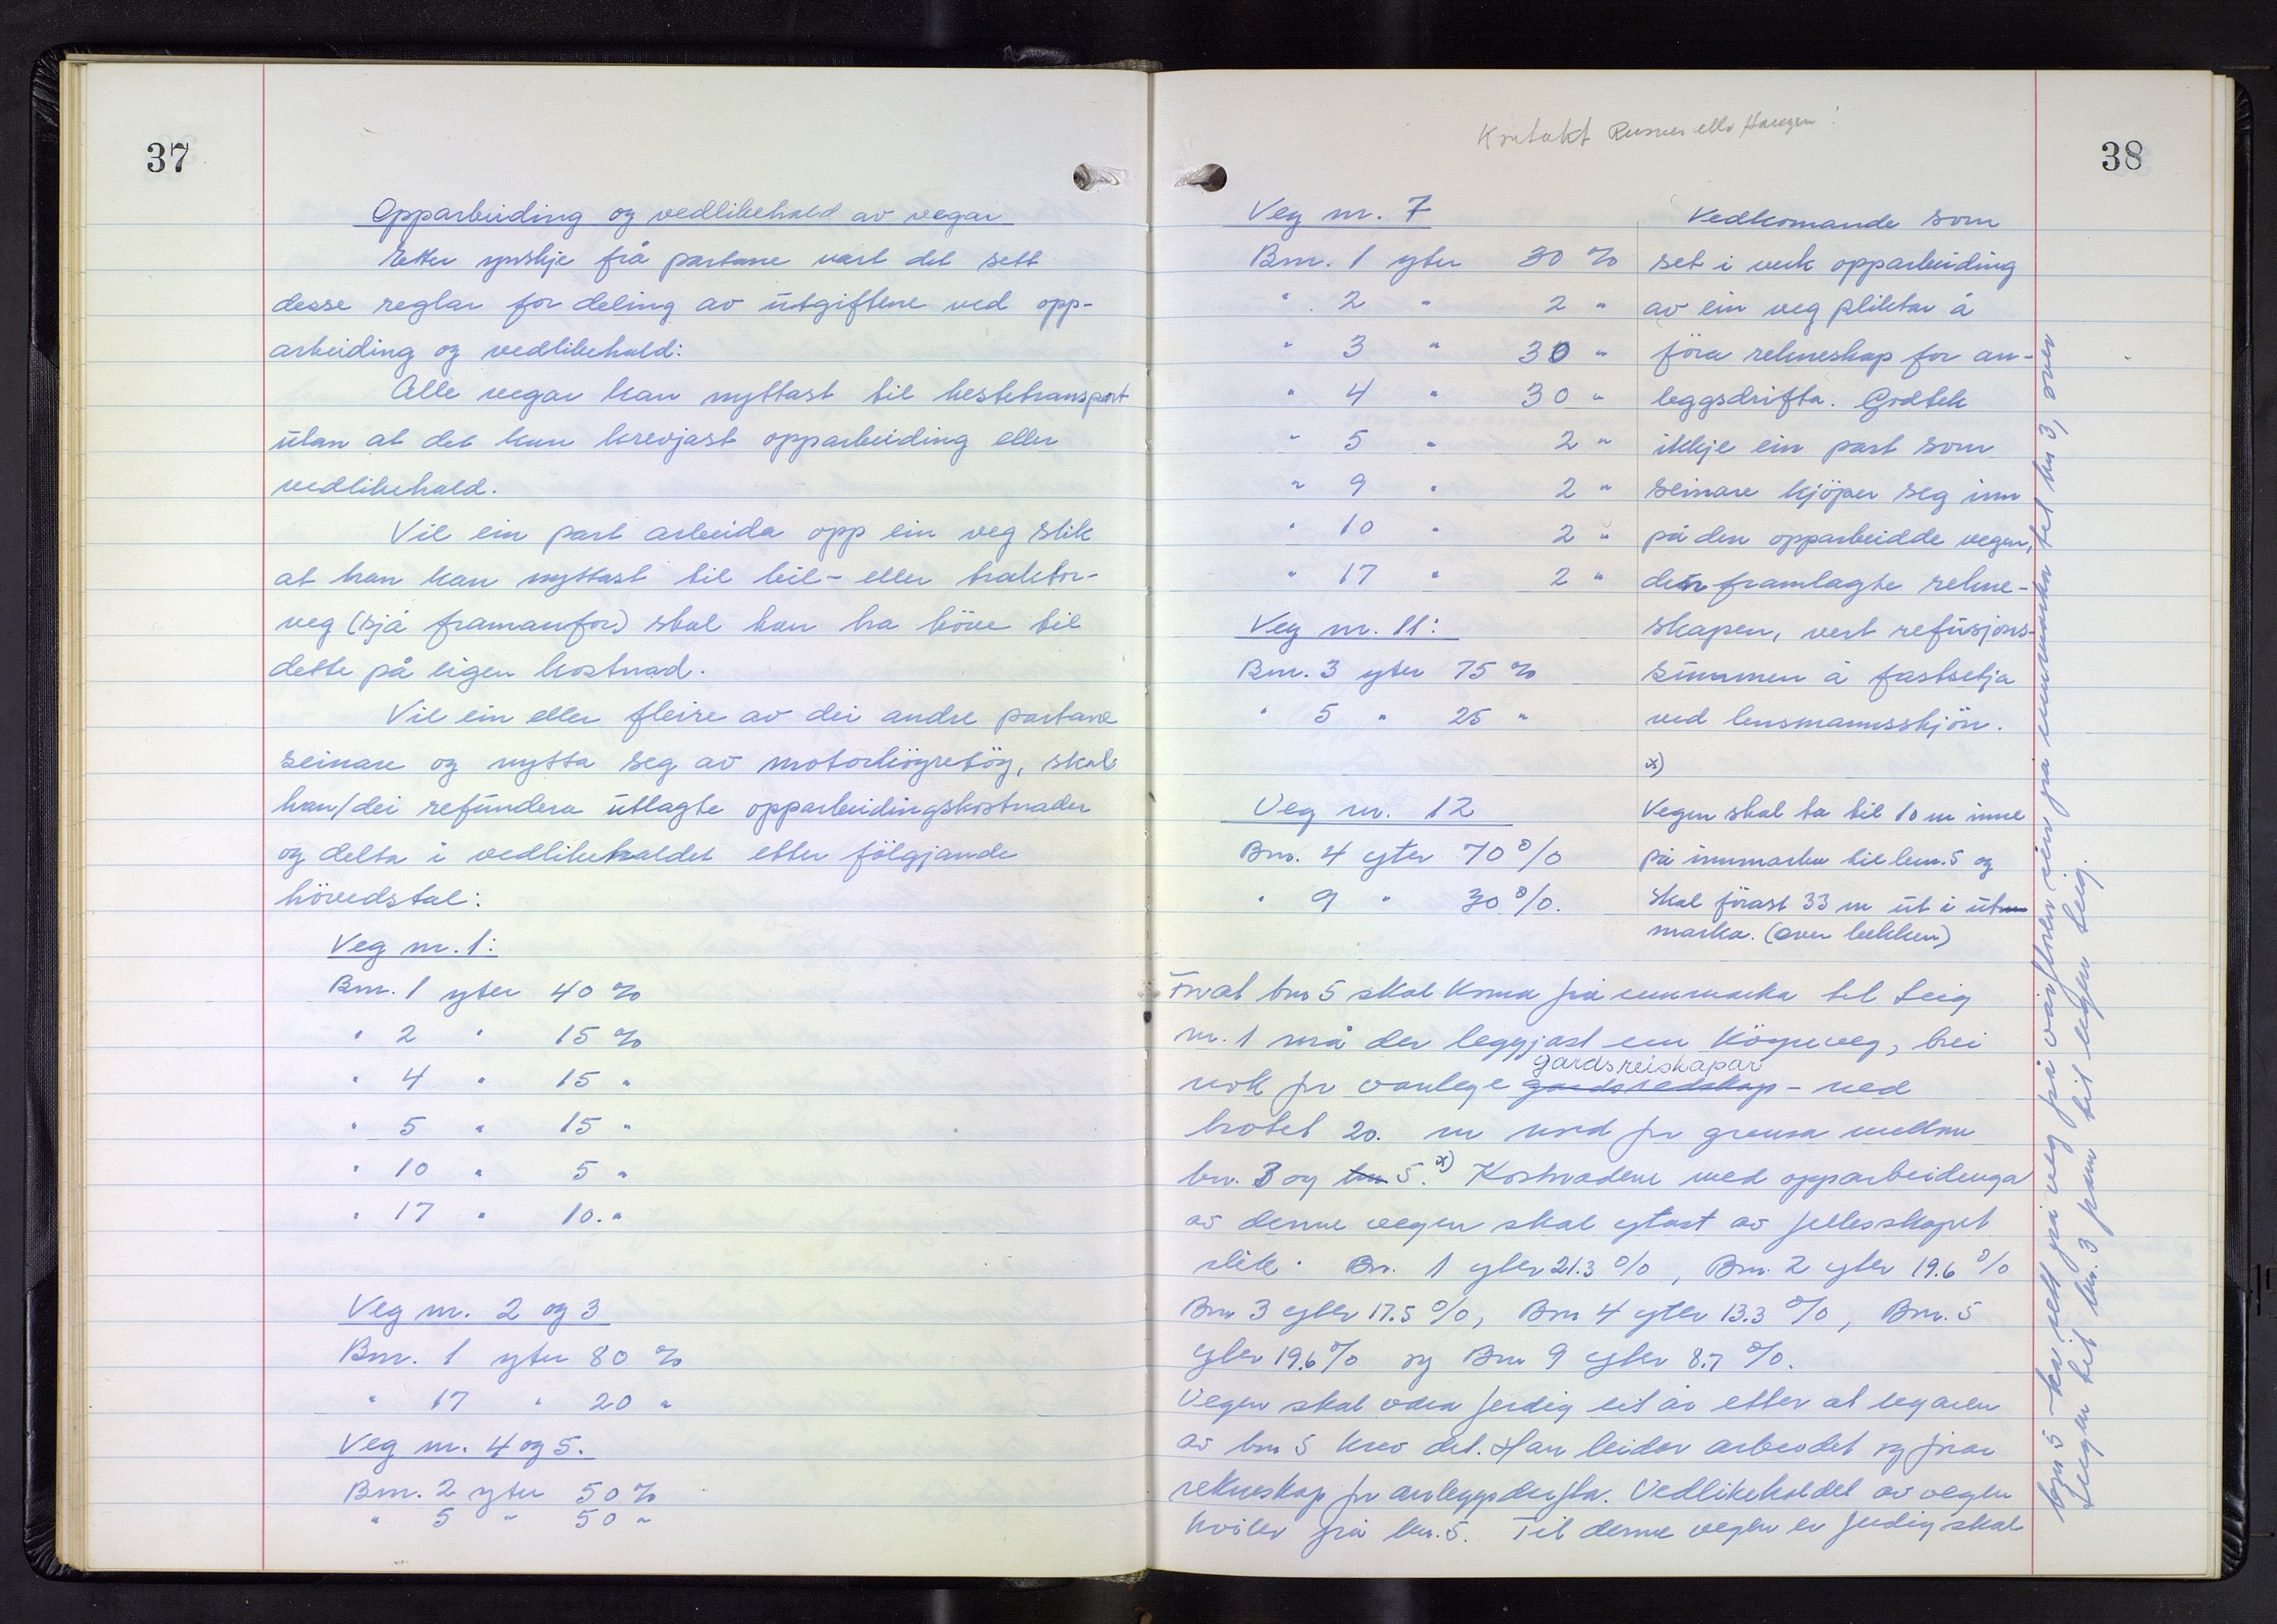 37
Opparbeiding og vedlikehald av vegar
Etter ynskje frå partane vart det sett
desse reglar for deling av utgiftene ved opp-
arbeiding og vedlikehald:
Alle vegar kan nyttast til hestetransport
utan at det kan krevjast opparbeiding eller
vedlikehald.
Vil ein part arbeida opp ein veg slik
at han kan nyttast til bil- eller traktor-
veg (sjå framanfor) skal han ha höve til
dette på eigen kostnad.
Vil ein eller fleire av dei andre partane
seinare og nytta seg av motorköyretöy, skal
han/dei refundera utlagte opparbeidingskostnader
og delta i vedlikehaldet etter fölgjande
hövedstal:
Veg nr. 1:
Bnr. 1 yter 40 %
" 2 " 15 %
" 4 " 15 "
" 5 " 15 "
" 10 " 5 "
" 17 " 10. "
Veg nr. 2 og 3
Bnr. 1 yter 80 %
" 17 " 20 "
Veg nr. 4 og 5.
Bnr. 2 yter 50 %
" 5 " 50 "
Kontakt Hauge!
38
Veg nr. 7
Bnr. 1 yter 30 %
" 2 " 2 "
" 3 " 30 "
" 4 " 30 "
" 5 " 2 "
" 9 " 2 "
" 10 " 2 "
" 17 " 2 "
Veg nr. 11:
Bnr. 3 yter 75 %
" 5 " 25 "
Veg nr. 12
Bnr. 4 yter 70 %
" 9 " 30 %.
Vedkomande som
set i verk opparbeiding
av ein veg pliktar å
föra rekneskap for an-
leggsdrifta. Godtek
ikkje ein part som
seinare kjöper seg inn
på den opparbeidde vegen,
den framlagte rekne-
skapen, vert refusjons-
summen å fastsetja
ved lensmannsskjön.
x)
Vegen skal ta til 10 m inne
på innmarka til bnr. 5 og
skal förast 33 m ut i ut-
marka. (over bekken)
For at bnr 5 skal koma frå innmarka til teig
nr. 1 må der leggjast ein köyreveg, brei
gardsreiskapar
nok for vanlege gardsredskap - ned
brotet 20. m nord for grensa mellom
bnr. 3 og bnr 5. x) Kostnadene med opparbeidinga
av denne vegen skal ytast av fellesskapet
slik: Bnr. 1 yter 21.3 %, Bnr. 2 yter 19.6 %
Bnr 3 yter 17.5 %, Bnr 4 yter 13.3 %, Bnr. 5
yter 19.6 % og Bnr 9 yter 8.7 %.
Vegen skal vera ferdig eit år etter at eigaren
av bnr 5 krev det. Han leidar arbeidet og förar
rekneskap for anleggsdrifta. Vedlikehaldet av vegen
kviler på bnr. 5. Til denne vegen er ferdig skal
bnr 5 ha rett på veg på vårförlen inn på innmarka til bnr 3, over
teigen til bnr. 3 fram til eigen teig.